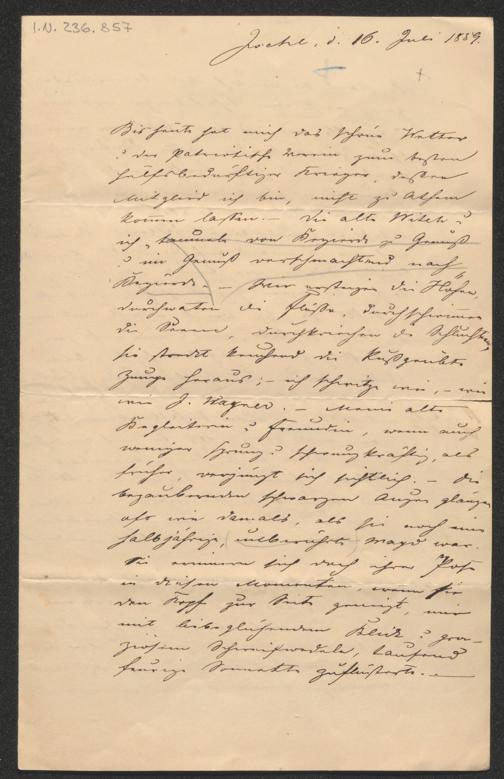 I.N. 236.857
Ischl, d. 16. Juli 1889.
Bis heute hat mich das schöne Wetter
u der Patriotische Verein zum besten
hülfsbedürftiger Krieger, dessen
Mitglied ich bin, nicht zu Athem
kommen lassen. – Die alte Witch u
ich „taumeln von Begierde zu Genuß
u im Genuß verschmachtend nach
Begierde.“ – Wir ersteigen die Höhen,
durchwaten die Flüsse, durchschwimmen
die Seeen, durchkriechen die Schluchten,
sie streckt keuchend die
Zunge heraus; – ich schwitze wie, – wie
wie J. Wagner. – Meine alte
Begleiterin u Freundin, wenn auch
weniger sprung u schwungkräftig, als
früher, verjüngt sich sichtlich. – Die
bezaubernden schwarzen Augen glänzen
oft wie damals, als sie noch eine
halbjährige, unberührte Magd war.
Sie erinnern sich doch ihrer Pose
in diesen Momenten, wenn sie
den Kopf zur Seite geneigt, mir
mit liebeglühendem Blick u gra-
ziösem Schweifwedeln, tausend
feurige Sonnette zuflüsterte. –